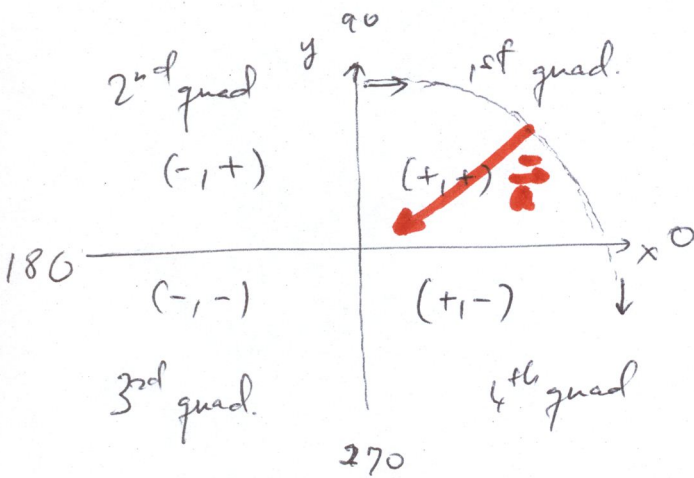 90
y
2nd quad
1st quad.
(-,+)
(+,+)
a
180
x 0
(-,-)
(+,-)
3rd quad.
4th quad
270